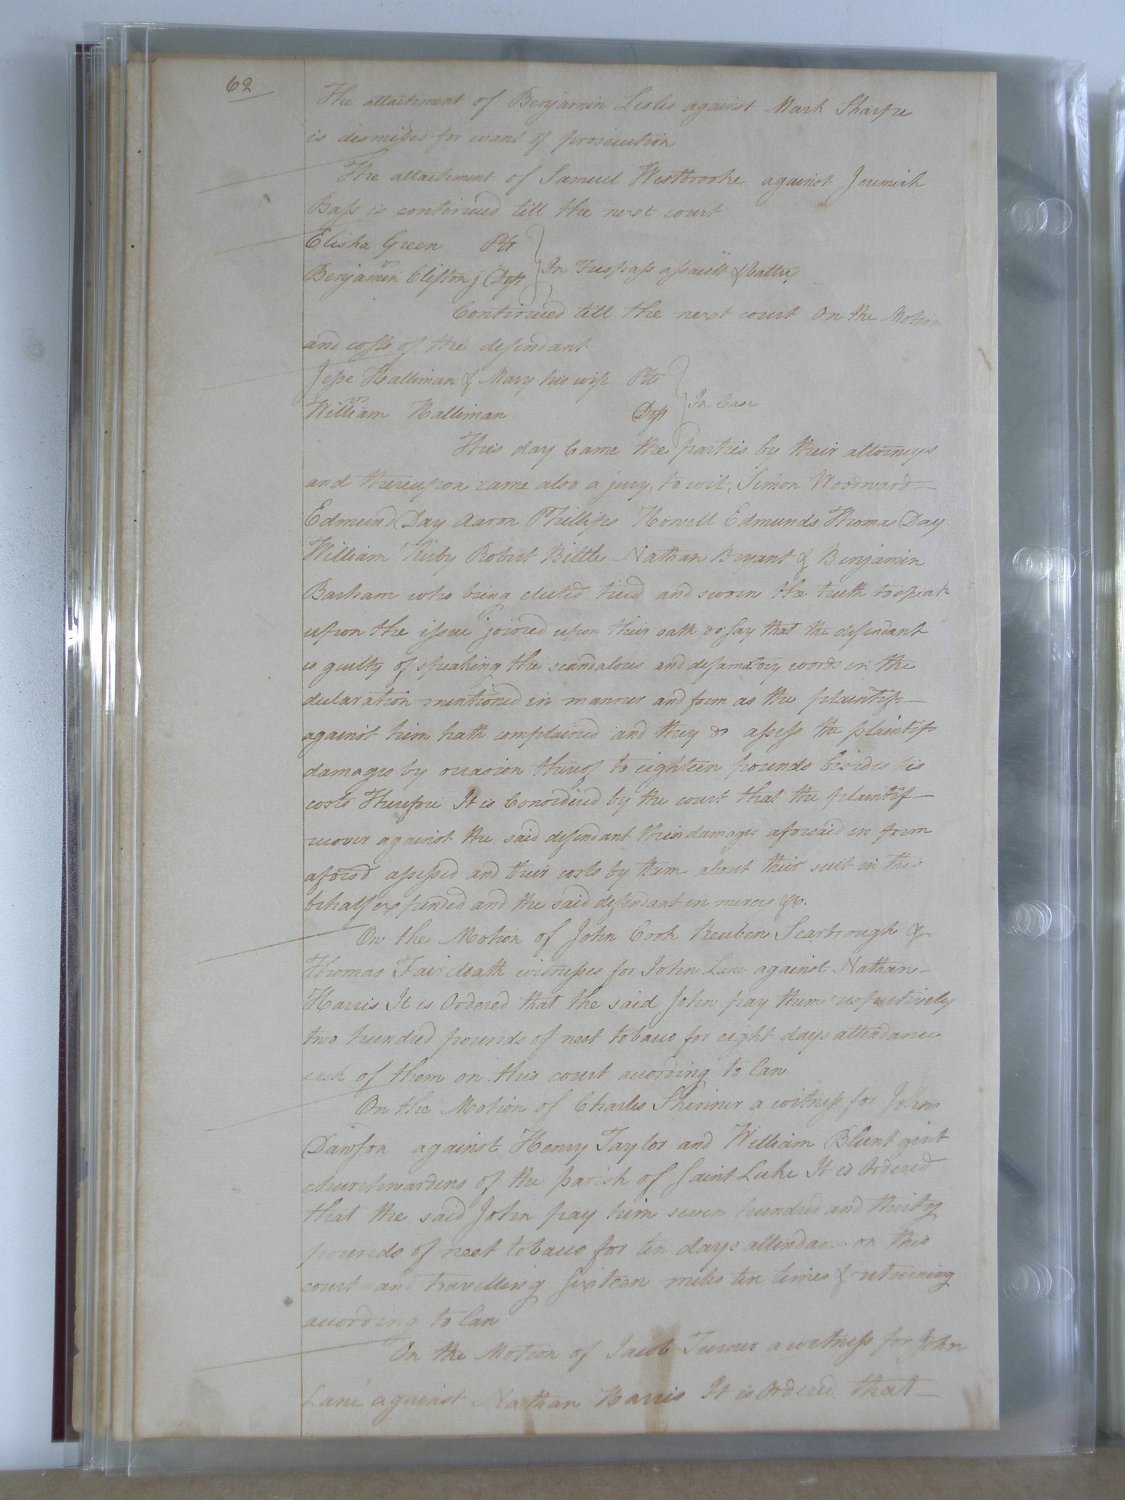 62
The attachment of Benjamin Lesles against Mark Sharpe
is dismissed for want of prosecution
The attachment of Samuel Westbrooke against Jeremiah
Bass is continued till the next court
Elisha Green Plt
vs
Benjamin Clifton Deft } In trespass assault & batte
Continued till the next court On the Motion
and costs of the defendant
Jesse Halliman & Mary his wife Plts
vs
William Halliman Deft } In Case
This day Came the parties by their attorneys
and thereupon came also a jury, to wit, Simon Woodward
Edmund Day Aaron Phillips Howell Edmunds Thomas Day
William Kirby Robert Bittle Nathan Bryant & Benjamin
Barham who being elected tried and sworn the truth to speak
upon the issue joined upon their oath do say that the defendant
is guilty of speaking the scandalous and defamatory words in the
declaration mentioned in manner and form as the plaintiff
against him hath complained and they do assess the plaintifs
damages by occasion thereof to eighteen pounds besides his
costs Therefore It is Considered by the court that the plaintif
recover against the said defendant their damages aforesaid in form
aforesd assessed and their costs by them about their suit in this
behalf expended and the said defendant in mercy &c.
On the Motion of John Cook Reuben Scarbrough &
Thomas Faircloath witnesses for John Lane against Nathan
Harris It is Ordered that the said John pay them respectively
two hundred pounds of neet tobacco for eight days attendance
each of them on this court according to Law
On the Motion of Charles Skinner a witness for John
Dawson against Henry Taylor and William Blunt gent
churchwardens of the parish of Saint Luke It is Ordered
that the said John pay him seven hundred and thirty
pounds of neet tobacco for ten days attendance on this
court and travelling sixteen miles ten times & returning
according to Law
On the Motion of Jacob Turner a witness for John
Lane against Nathan Harris It is Ordered that